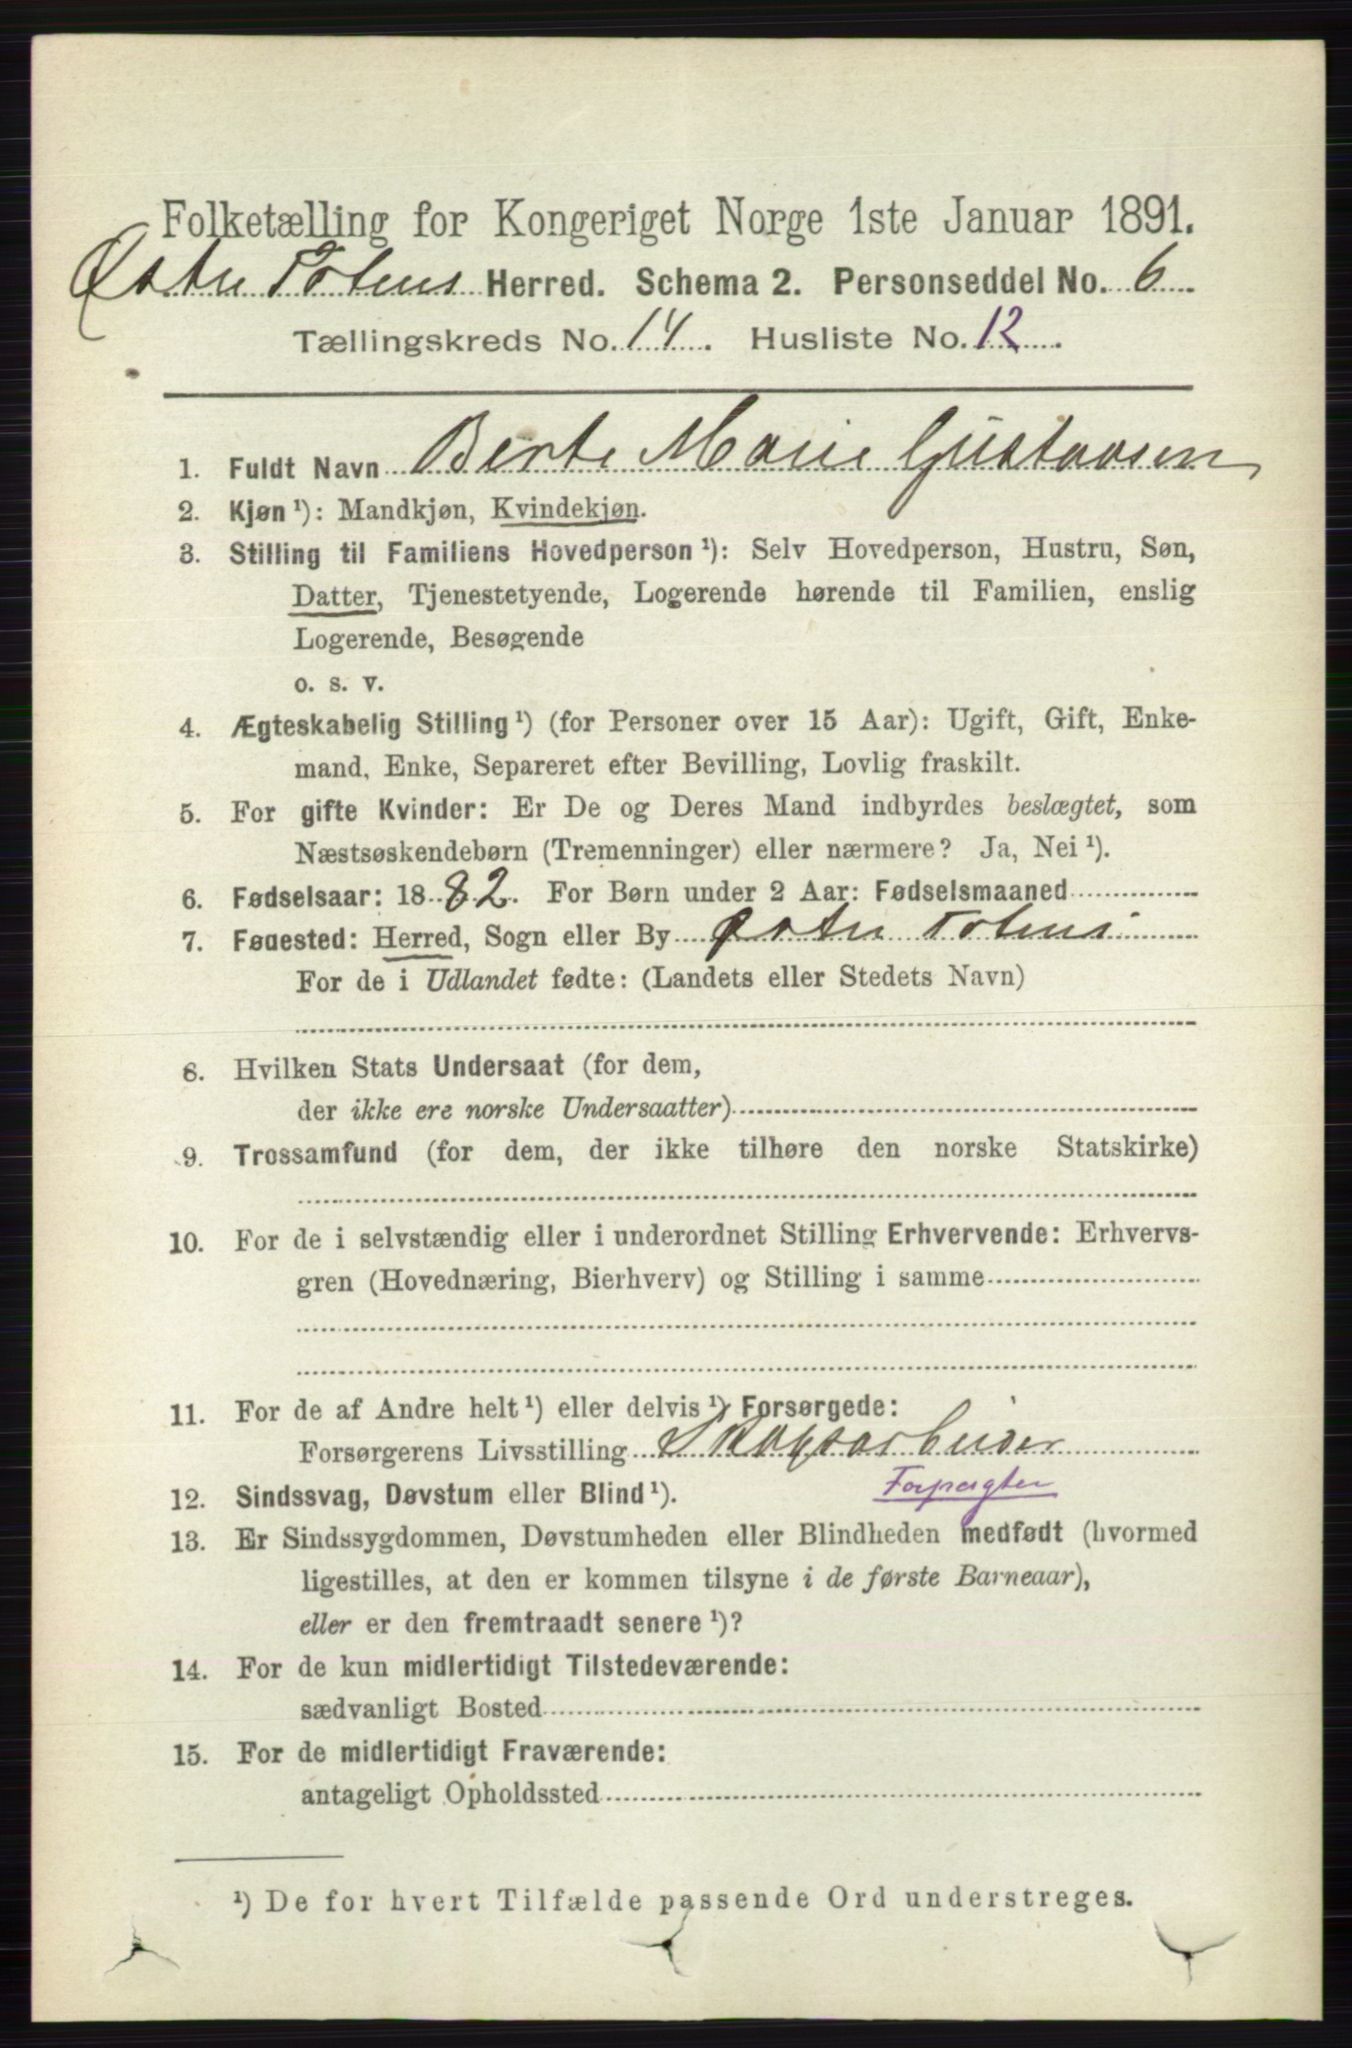 Folketælling for Kongeriget Norge 1ste Januar 1891.
Østre Totens Herred. Schema 2. Personseddel No. 6
Tællingskreds No. 14. Husliste No. 12.
1. Fuldt Navn Berte Marie Gustavsen
2. Kjøn ¹): Mandkjøn, Kvindekjøn.
3. Stilling til Familiens Hovedperson ¹): Selv Hovedperson, Hustru, Søn,
Datter, Tjenestetyende, Logerende hørende til Familien, enslig
Logerende, Besøgende
o. s. v.
4. Ægteskabelig Stilling ¹) (for Personer over 15 Aar): Ugift, Gift, Enke-
mand, Enke, Separeret efter Bevilling, Lovlig fraskilt.
5. For gifte Kvinder: Er De og Deres Mand indbyrdes beslægtet, som
Næstsøskendebørn (Tremenninger) eller nærmere? Ja, Nei ¹).
6. Fødselsaar: 1882. For Børn under 2 Aar: Fødselsmaaned
7. Fødested: Herred, Sogn eller By Østre Totens
For de i Udlandet fødte: (Landets eller Stedets Navn)
8. Hvilken Stats Undersaat (for dem,
der ikke ere norske Undersaatter)
9. Trossamfund (for dem, der ikke tilhøre den norske Statskirke)
10. For de i selvstændig eller i underordnet Stilling Erhvervende: Erhvervs-
gren (Hovednæring, Bierhverv) og Stilling i samme
11. For de af Andre helt ¹) eller delvis ¹) Forsørgede:
Forsørgerens Livsstilling Skogsarbeider
Forpagter
12. Sindssvag, Døvstum eller Blind ¹).
13. Er Sindssygdommen, Døvstumheden eller Blindheden medfødt (hvormed
ligestilles, at den er kommen tilsyne i de første Barneaar),
eller er den fremtraadt senere ¹)?
14. For de kun midlertidigt Tilstedeværende:
sædvanligt Bosted
15. For de midlertidigt Fraværende:
antageligt Opholdssted
¹) De for hvert Tilfælde passende Ord understreges.